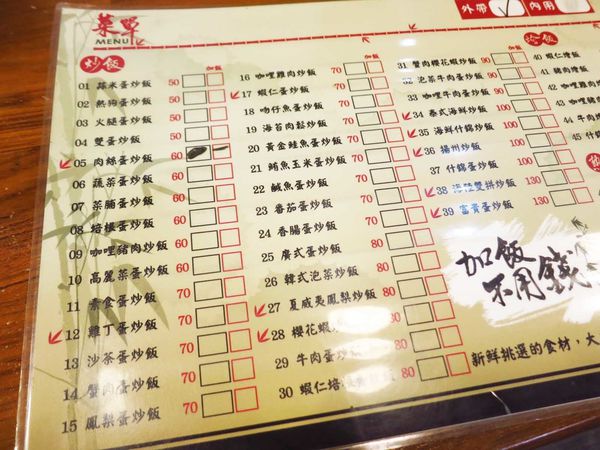 菜單
MENU
外帶 內用
炒飯
加飯
01 蒜米蛋炒飯 50
02 熱狗蛋炒飯 50
03 火腿蛋炒飯 50
04 雙蛋炒飯 50
05 肉絲蛋炒飯 60
06 蔬菜蛋炒飯 60
07 菜脯蛋炒飯 60
08 培根蛋炒飯 60
09 咖哩豬肉炒飯 60
10 高麗菜蛋炒飯 60
11 素食蛋炒飯 70
12 雞丁蛋炒飯 70
13 沙茶蛋炒飯 70
14 蟹肉蛋炒飯 70
15 鳳梨蛋炒飯 70
加飯
16 咖哩雞肉炒飯 70
17 蝦仁蛋炒飯 70
18 吻仔魚蛋炒飯 70
19 海苔肉鬆炒飯 70
20 黃金鮭魚蛋炒飯 70
21 鮪魚玉米蛋炒飯 70
22 鹹魚蛋炒飯 70
23 番茄蛋炒飯 70
24 香腸蛋炒飯 80
25 廣式蛋炒飯 80
26 韓式泡菜炒飯 80
27 夏威夷鳳梨炒飯 80
28 櫻花蝦 80
29 牛肉蛋炒飯 80
30 蝦仁培 80
加飯
31 蟹肉櫻花蝦炒飯 90
32 泡菜牛肉蛋炒飯 90
33 咖哩牛肉蛋炒飯 90
34 泰式海鮮炒飯 100
35 海鮮什錦炒飯 100
36 揚州炒飯 100
37 什錦蛋炒飯 100
38 海陸雙拼炒飯 130
39 富貴蛋炒飯 130
燴飯
40 蝦仁燴飯
41 豬肉燴飯
42 咖哩雞
43 咖哩豬
44 牛肉
45
加飯
不用錢
新鮮挑選的食材，大